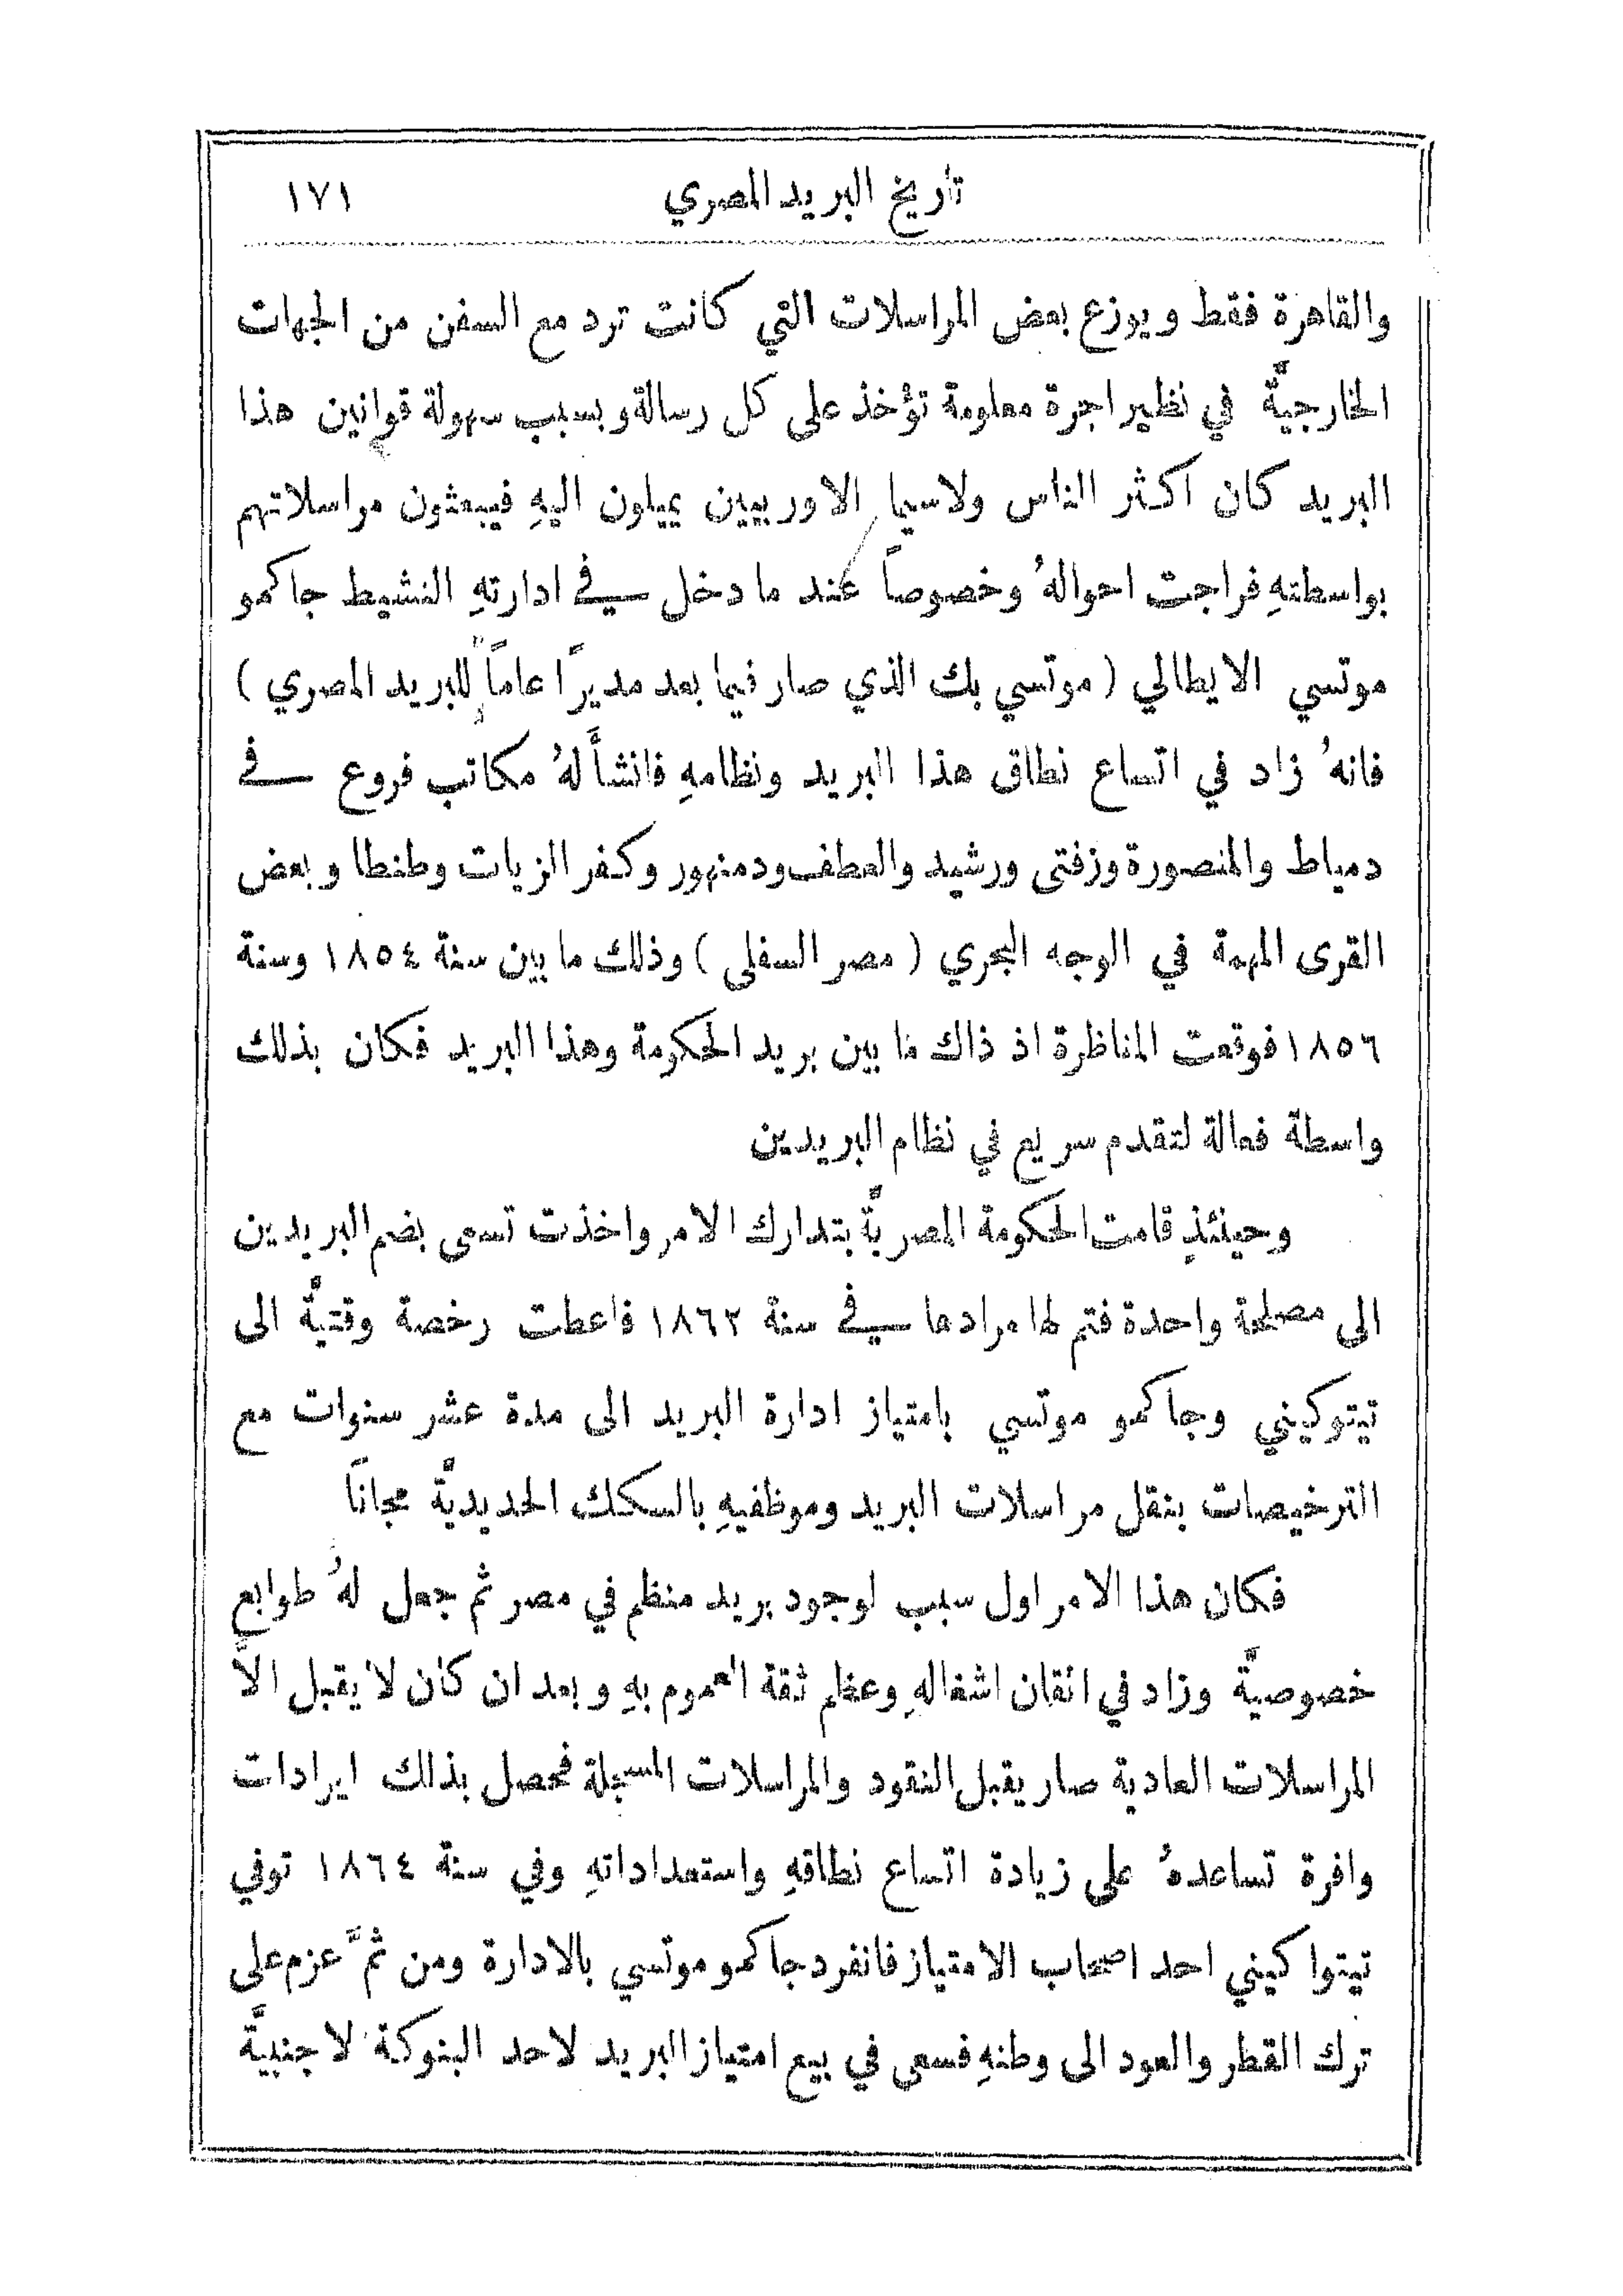 تاريخ البريد المصري ١٧١
والقاهرة فقط ويوزع بعض المراسلات التي كانت ترد مع السفن من الجهات
الخارجيَّة في نظير اجرة معلومة تؤخذ على كل رسالة وبسبب سهولة قوانين هذا
البريد كان اكثر الناس ولاسيما الاوربيين يميلون اليهِ فيبعثون مراسلاتهم
بواسطتهِ فراجت احوالهُ وخصوصاً عند ما دخل في ادارتهِ النشيط جاكمو
موتسي الايطالي (موتسي بك الذي صار فيما بعد مديرًا عاماً للبريد المصري)
فانهُ زاد في اتساع نطاق هذا البريد ونظامهِ فانشأَ لهُ مكاتب فروع في
دمياط والمنصورة وزفتى ورشيد والعطف ودمنهور وكفر الزيات وطنطا وبعض
القرى المهمة في الوجه البحري (مصر السفلى) وذلك ما بين سنة ١٨٥٤ وسنة
١٨٥٦ فوقعت المناظرة اذ ذاك ما بين بريد الحكومة وهذا البريد فكان بذلك
واسطة فعالة لتقدم سريع في نظام البريدين
وحينئذٍ قامت الحكومة المصريَّة بتدارك الامر واخذت تسعى بضم البريدين
الى مصلحة واحدة فتم لها مرادها في سنة ١٨٦٢ فاعطت رخصة وقتيَّة الى
تيتوكيني وجاكمو موتسي بامتياز ادارة البريد الى مدة عشر سنوات مع
الترخيصات بنقل مراسلات البريد وموظفيهِ بالسكك الحديديَّة مجاناً
فكان هذا الامر اول سبب لوجود بريد منظم في مصر ثم جعل لهُ طوابع
خصوصيَّة وزاد في اتقان اشغالهِ وعظم ثقة العموم بهِ وبعد ان كان لا يقبل الاَّ
المراسلات العادية صار يقبل النقود والمراسلات المسجلة فحصل بذلك ايرادات
وافرة تساعدهُ على زيادة اتساع نطاقهِ واستعداداتهِ وفي سنة ١٨٦٤ توفي
تيتوا كيني احد اصحاب الامتياز فانفرد جاكمو موتسي بالادارة ومن ثمَّ عزم على
ترك القطر والعود الى وطنهِ فسعى في بيع امتياز البريد لاحد البنوكة لاجنبيَّة